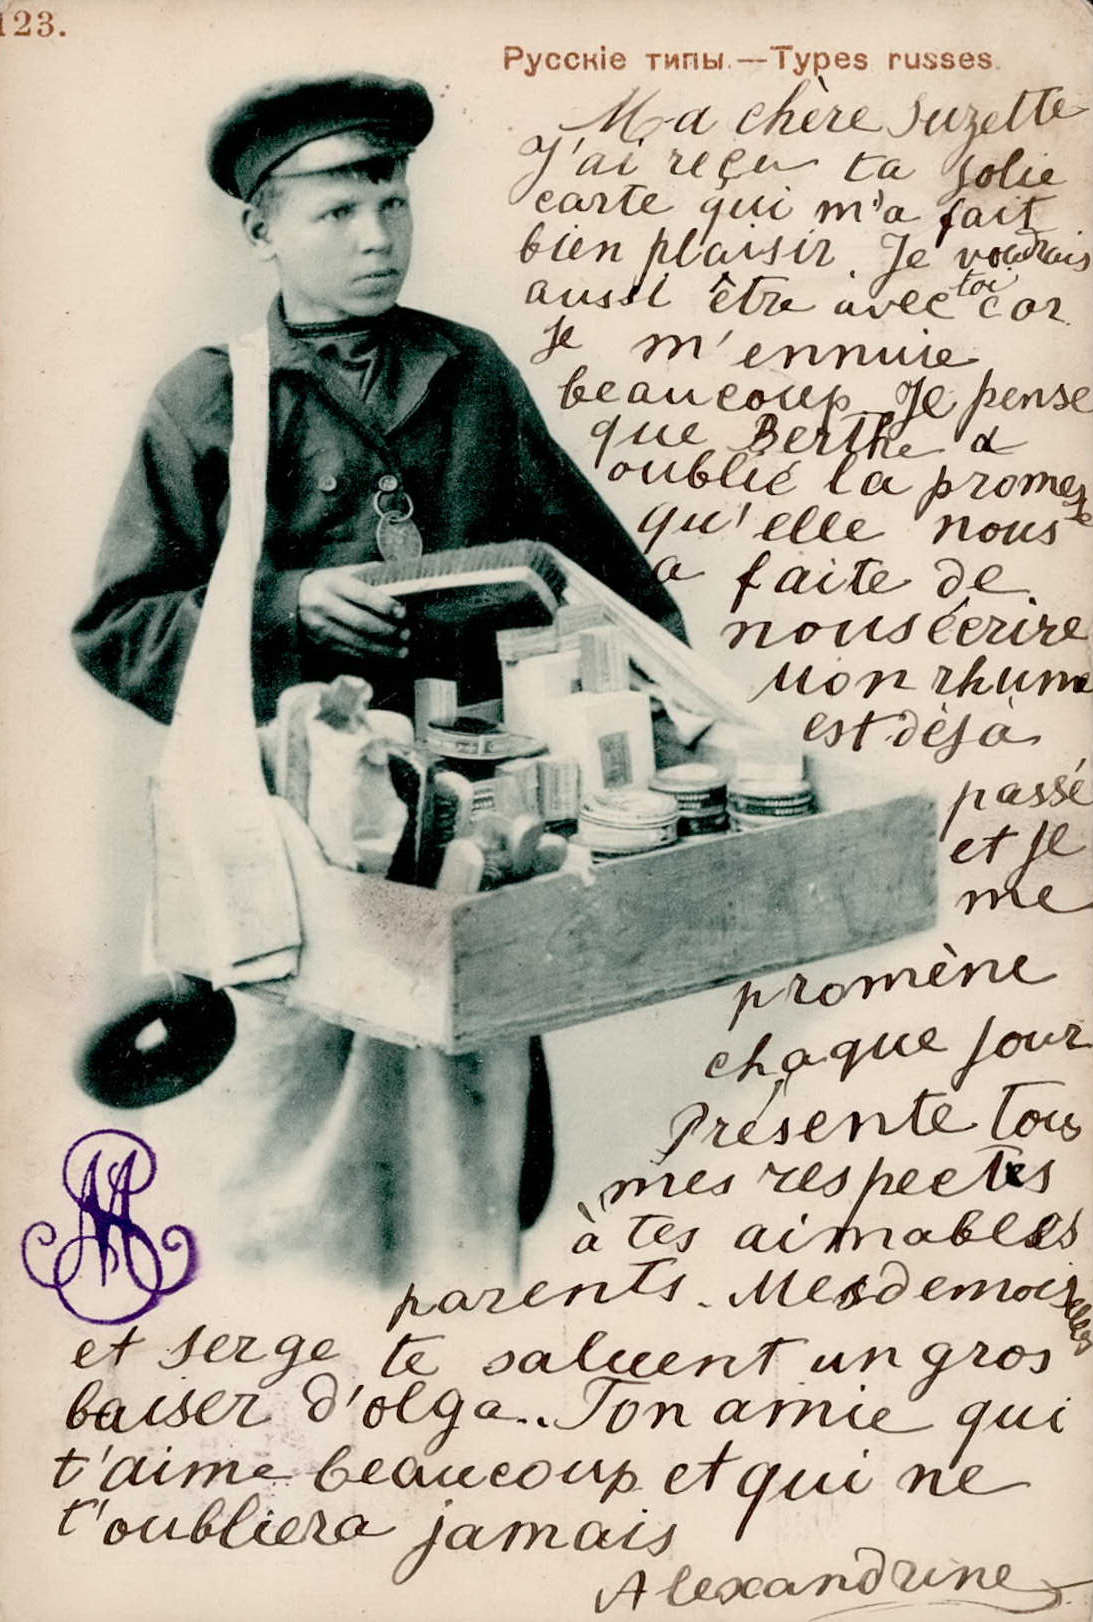 123.
Русскіе типы.—Types russes.
Ma chère Suzette
J'ai reçu ta jolie
carte qui m'a fait
bien plaisir. Je voudrais
aussi être avec toi car
je m'ennuie
beaucoup. Je pense
que Berthe a
oublié la promesse
qu'elle nous
a faite de
nous écrire
Mon rhume
est déjà
passé
et je
me
promène
chaque jour
Présente tous
mes respectes
à tes aimables
parents. Mesdemoiselles
et serge te saluent un gros
baiser d'olga.. Ton amie qui
t'aime beaucoup et qui ne
t'oubliera jamais
Alexandrine